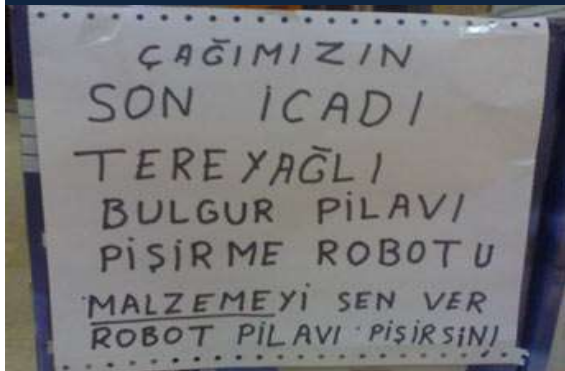 ÇAĞIMIZIN
SON İCADI
TEREYAĞLI
BULGUR PİLAVI
PİŞİRME ROBOTU
MALZEMEYİ SEN VER
ROBOT PİLAVI PİŞİRSİN!